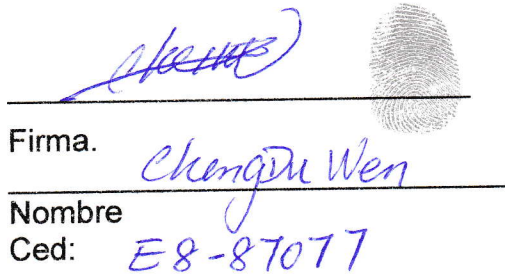 Firma.
ChengDu Wen
Nombre
Ced: E8-87077